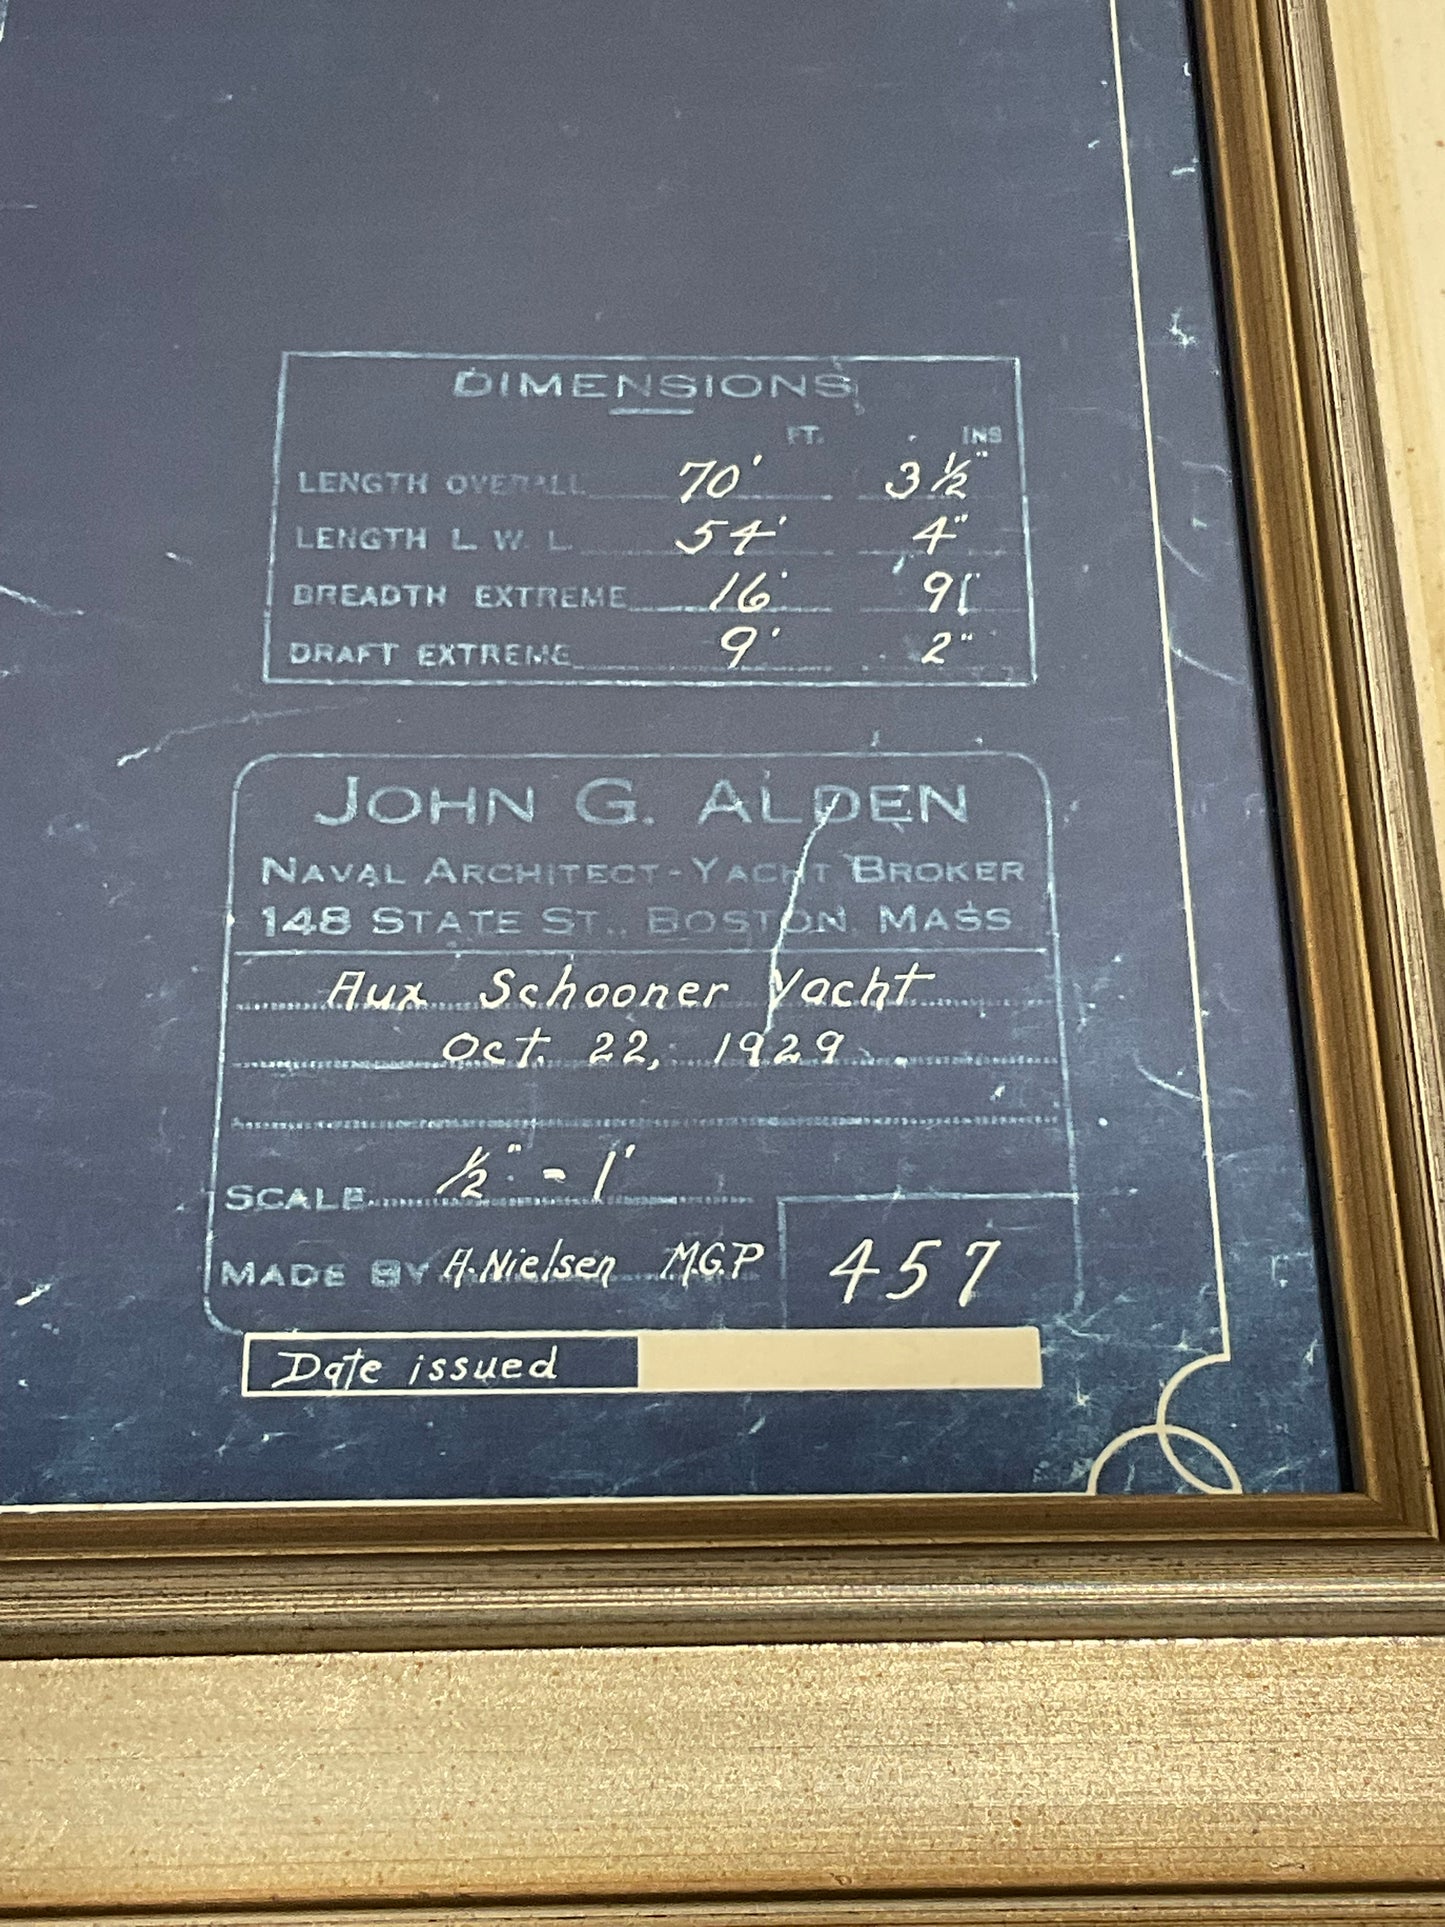 DIMENSIONS
FT. INS
LENGTH OVERALL 70' 3 ½"
LENGTH L. W. L. 54' 4"
BREADTH EXTREME 16' 9
DRAFT EXTREME 9' 2"
JOHN G. ALDEN
NAVAL ARCHITECT-YACHT BROKER
148 STATE ST., BOSTON, MASS
Aux Schooner Yacht
Oct. 22, 1929
SCALE ½" - 1'
MADE BY A. Nielsen M.G.P
457
Date issued